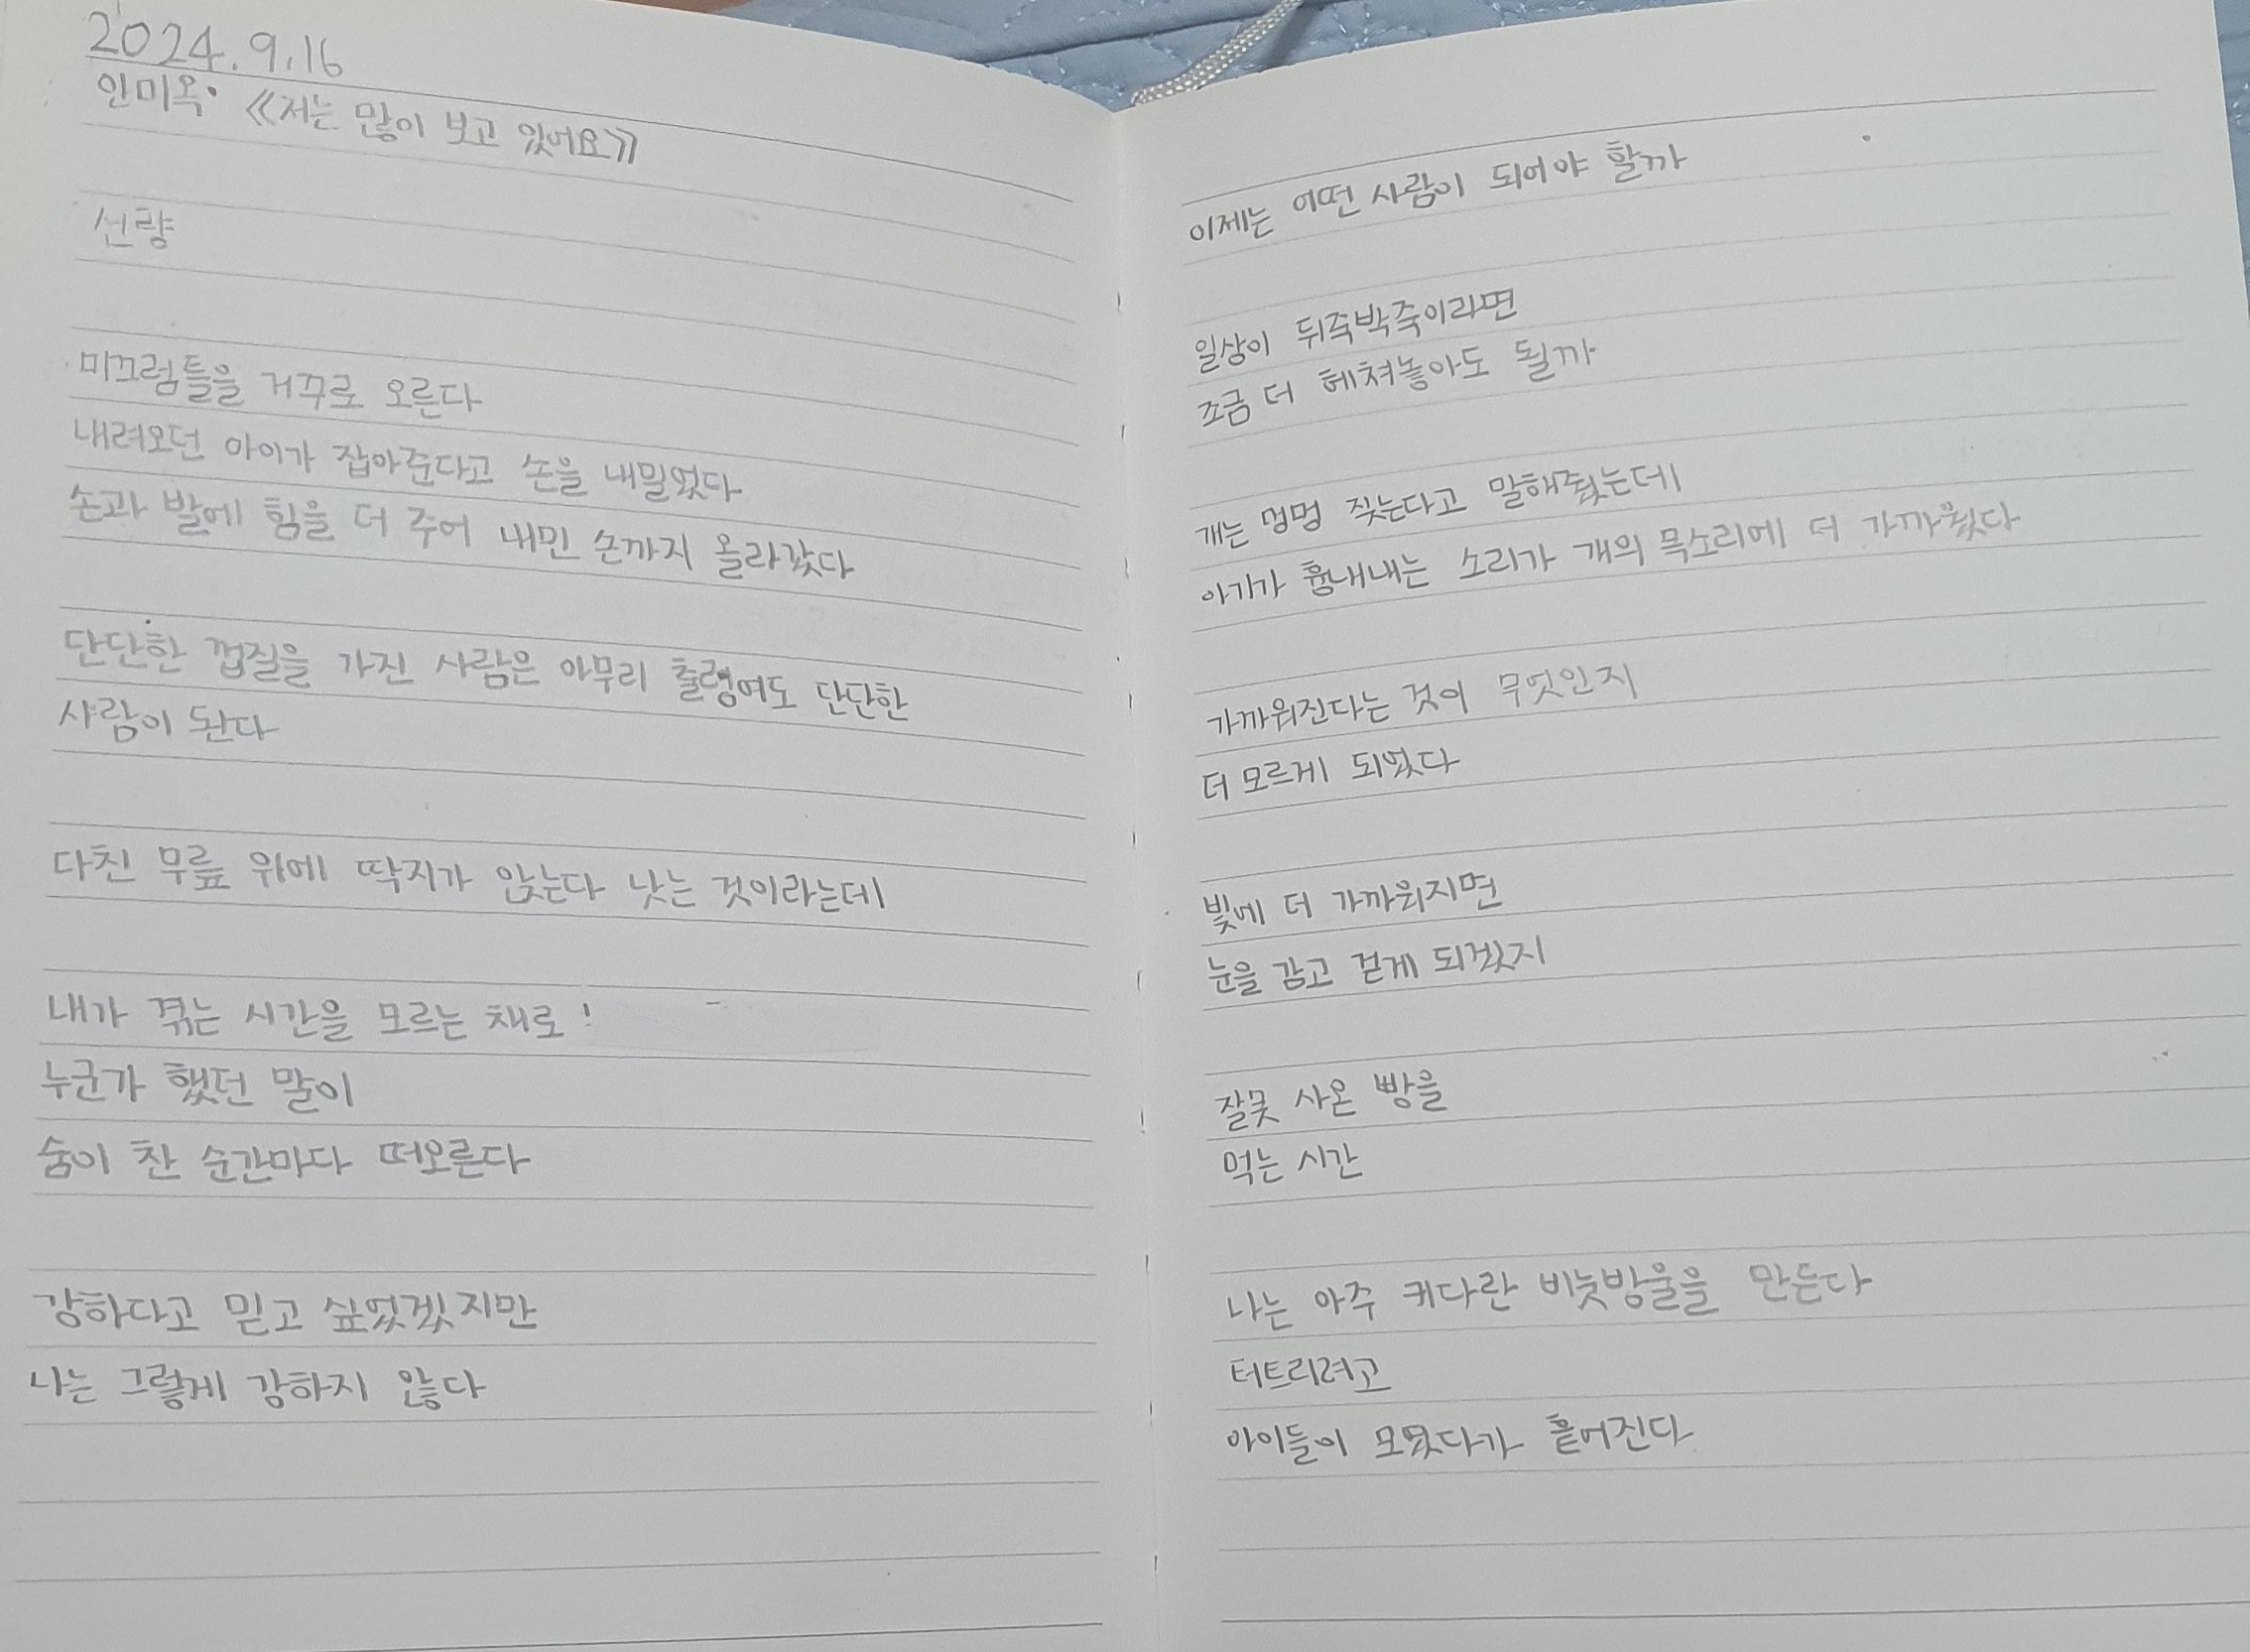 2024.9.16
안미옥. 《저는 많이 보고 있어요》
선량
미끄럼틀을 거꾸로 오른다
내려오던 아이가 잡아준다고 손을 내밀었다
손과 발에 힘을 더 주어 내민 손까지 올라갔다
단단한 껍질을 가진 사람은 아무리 출렁여도 단단한
사람이 된다
다친 무릎 위에 딱지가 앉는다 낫는 것이라는데
내가 겪는 시간을 모르는 채로!
누군가 했던 말이
숨이 찬 순간마다 떠오른다
강하다고 믿고 싶었겠지만
나는 그렇게 강하지 않다
이제는 어떤 사람이 되어야 할까
일상이 뒤죽박죽이라면
조금 더 헤쳐놓아도 될까
개는 멍멍 짖는다고 말해줬는데
아기가 흉내내는 소리가 개의 목소리에 더 가까웠다
가까워진다는 것이 무엇인지
더 모르게 되었다
빛에 더 가까워지면
눈을 감고 걷게 되겠지
잘못 사온 빵을
먹는 시간
나는 아주 커다란 비눗방울을 만든다
터트리려고
아이들이 모였다가 흩어진다